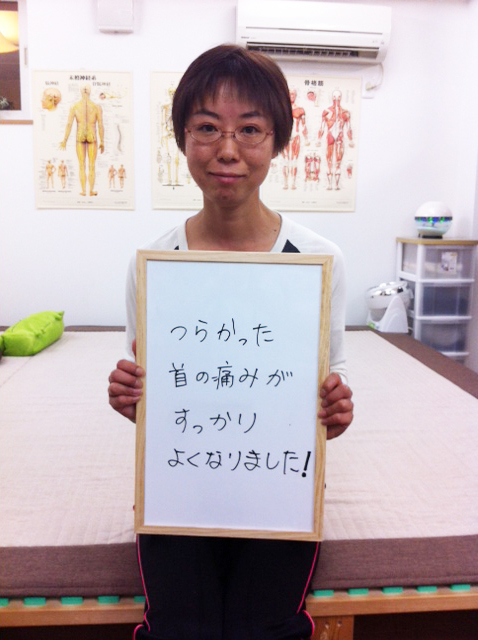 つらかった
首の痛みが
すっかり
よくなりました!